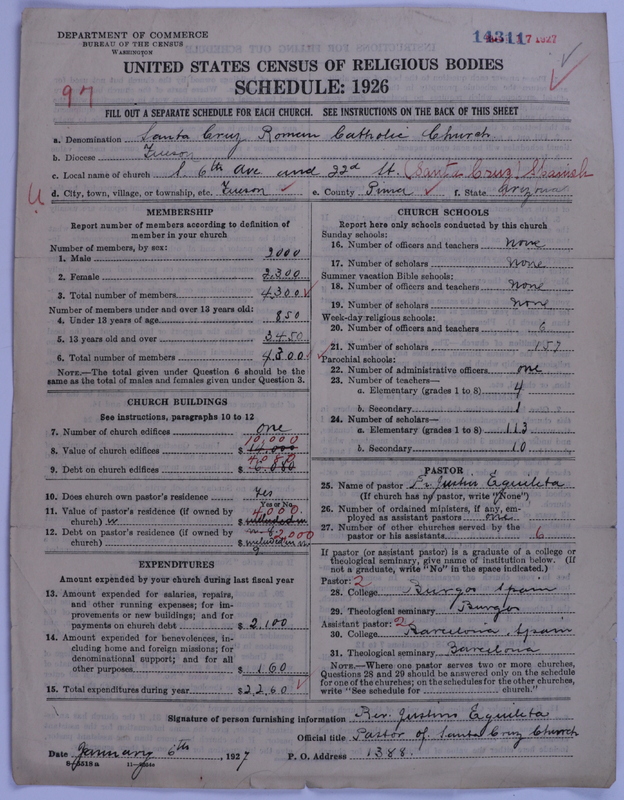 DEPARTMENT OF COMMERCE
BUREAU OF THE CENSUS
WASHINGTON
14311 7 1927
UNITED STATES CENSUS OF RELIGIOUS BODIES
SCHEDULE: 1926
97
FILL OUT A SEPARATE SCHEDULE FOR EACH CHURCH. SEE INSTRUCTIONS ON THE BACK OF THIS SHEET
a. Denomination Santa Cruz Roman Catholic Church
b. Diocese Tucson
c. Local name of church S. 6th Ave and 22d St. (Santa Cruz) Spanish
d. City, town, village, or township, etc. Tucson e. County Pima f. State Arizona
MEMBERSHIP
Report number of members according to definition of
member in your church
Number of members, by sex:
1. Male 2000
2. Female 2300
3. Total number of members 4300
Number of members under and over 13 years old:
4. Under 13 years of age 850
5. 13 years old and over 3450
6. Total number of members 4300
NOTE.—The total given under Question 6 should be
the same as the total of males and females given under Question 3.
CHURCH BUILDINGS
See instructions, paragraphs 10 to 12
7. Number of church edifices one
10,000
8. Value of church edifices $ 14,000
9. Debt on church edifices $ 6.880
10. Does church own pastor's residence Yes
Yes or No
11. Value of pastor's residence (if owned by
church) $ 4,000. included in
12. Debt on pastor's residence (if owned by
church) $ 2,000 included in
EXPENDITURES
Amount expended by your church during last fiscal year
13. Amount expended for salaries, repairs,
and other running expenses; for im-
provements or new buildings; and for
payments on church debt $ 2,100
14. Amount expended for benevolences, in-
cluding home and foreign missions; for
denominational support; and for all
other purposes $ 160
15. Total expenditures during year $ 2260
CHURCH SCHOOLS
Report here only schools conducted by this church
Sunday schools:
16. Number of officers and teachers none
17. Number of scholars none
Summer vacation Bible schools:
18. Number of officers and teachers none
19. Number of scholars none
Week-day religious schools:
20. Number of officers and teachers 6
21. Number of scholars 157
Parochial schools:
22. Number of administrative officers one
23. Number of teachers—
a. Elementary (grades 1 to 8) 4
b. Secondary 1
24. Number of scholars—
a. Elementary (grades 1 to 8) 113
b. Secondary 10
PASTOR
25. Name of pastor Fr. Justus Eguileta
(If church has no pastor, write "None")
26. Number of ordained ministers, if any, em-
ployed as assistant pastors one
27. Number of other churches served by the
pastor or his assistants 6
If pastor (or assistant pastor) is a graduate of a college or
theological seminary, give name of institution below. (If
not a graduate, write "No" in the space indicated.)
Pastor: 2
28. College Burgos Spain
29. Theological seminary Burgos
Assistant pastor: 2
30. College Barcelona Spain
31. Theological seminary Barcelona
NOTE.—Where one pastor serves two or more churches,
Questions 28 and 29 should be answered only on the schedule
for one of the churches; on the schedules for the other churches,
write "See schedule for church."
Signature of person furnishing information Rev. Justino Eguileta
Official title Pastor of Santa Cruz Church
Date January 6th, 1927 P. O. Address 1388.